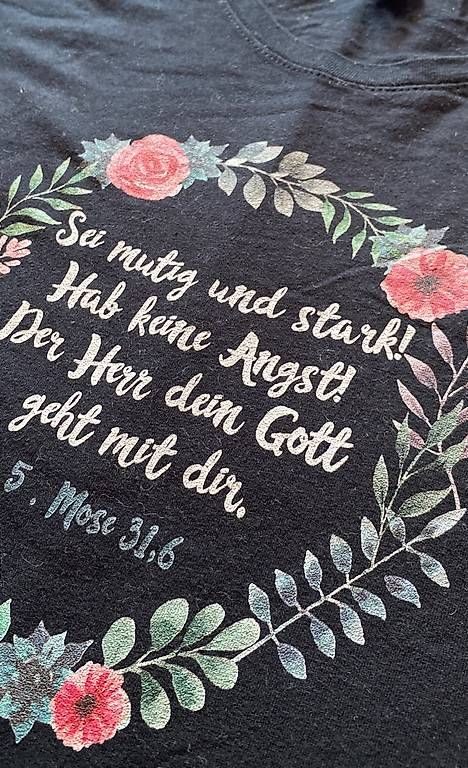 Sei mutig und stark!
Hab keine Angst!
Der Herr dein Gott
geht mit dir.
5. Mose 31,6